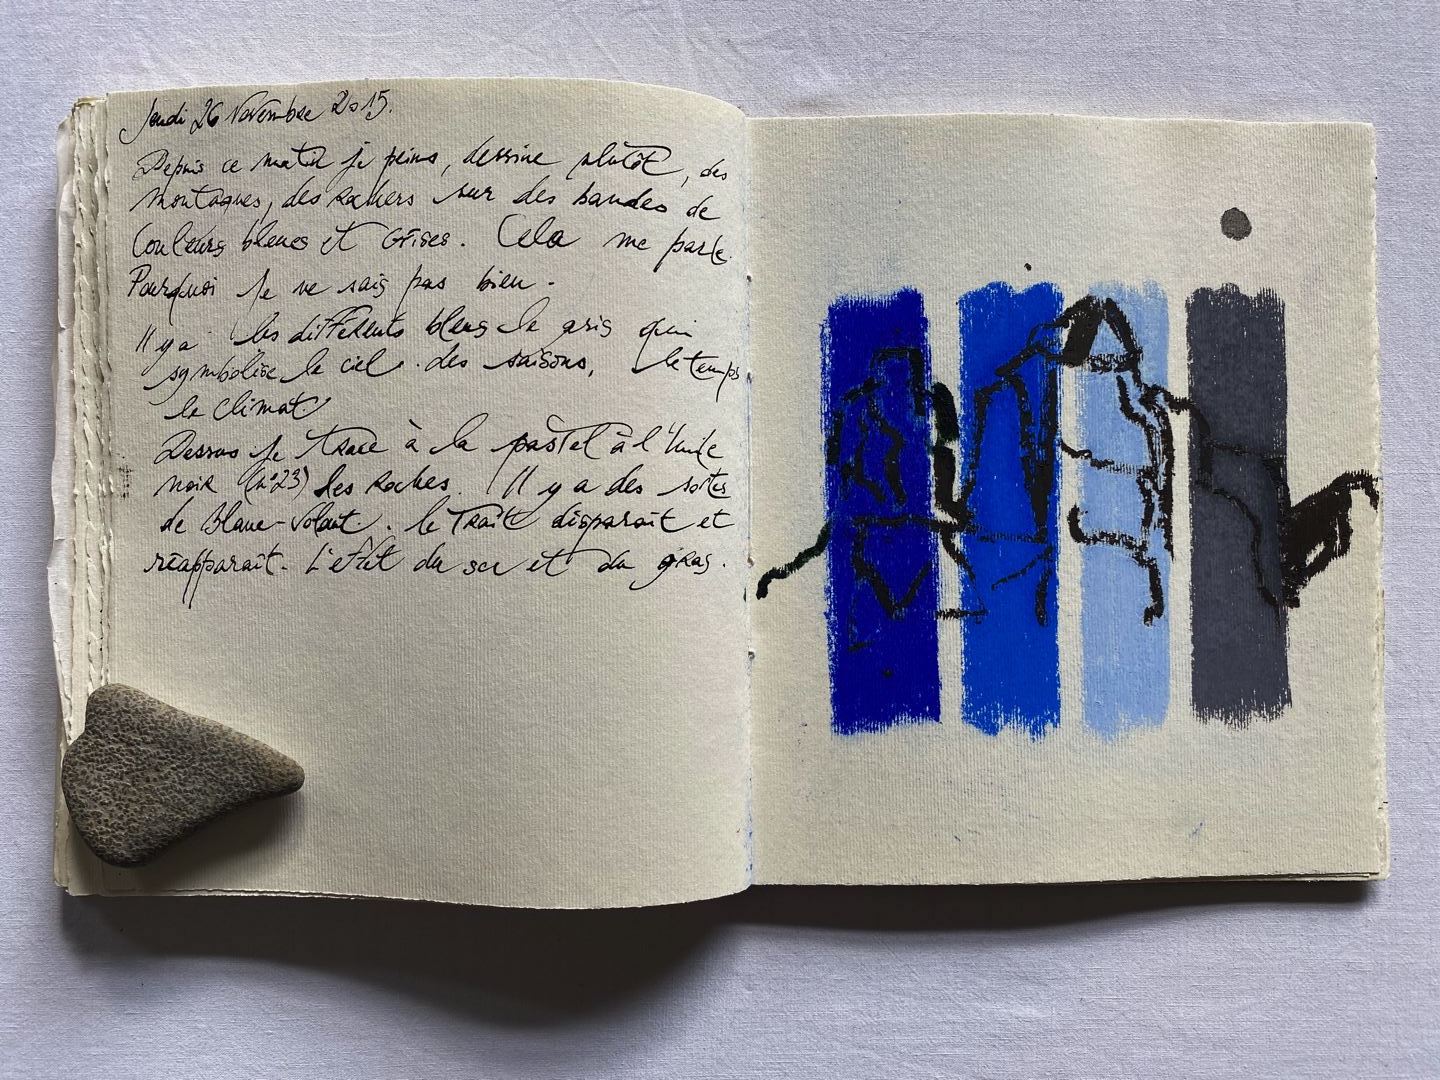 Jeudi 26 Novembre 2015.
Depuis ce matin je peins, dessine plutôt, des
montagnes, des rochers sur des bandes de
couleurs bleues et grises. Cela me parle.
Pourquoi je ne sais pas bien.
Il y a les différents bleus le gris qui
symbolise le ciel. des saisons, le temps
le climat
Dessus je trace à la pastel à l'huile
noir (n°23) les roches. Il y a des sortes
de blanc-volant. le trait disparait et
réapparait. L'effet du sec et du gras.